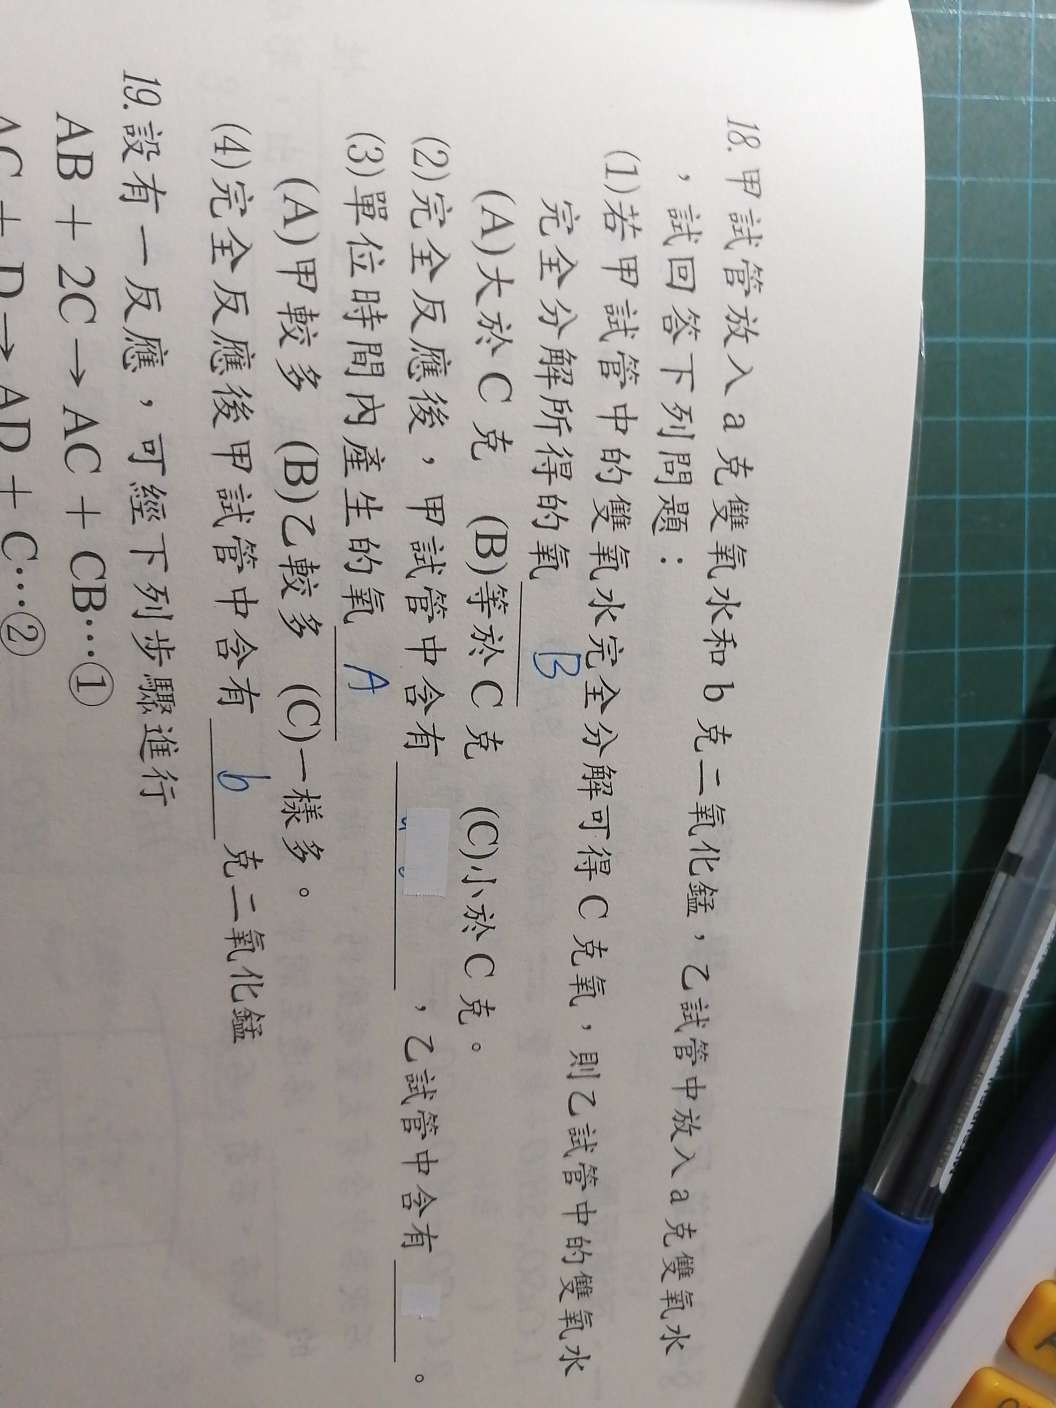 18.甲試管放入a克雙氧水和b克二氧化錳，乙試管中放入a克雙氧水
，試回答下列問題：
(1)若甲試管中的雙氧水完全分解可得C克氧，則乙試管中的雙氧水
完全分解所得的氧 B
(A)大於C克 (B)等於C克 (C)小於C克。
(2)完全反應後，甲試管中含有 ，乙試管中含有 。
(3)單位時間內產生的氧 A
(A)甲較多 (B)乙較多 (C)一樣多。
(4)完全反應後甲試管中含有 b 克二氧化錳
19.設有一反應，可經下列步驟進行
AB＋2C→AC＋CB…①
AC＋D→AD＋C…②